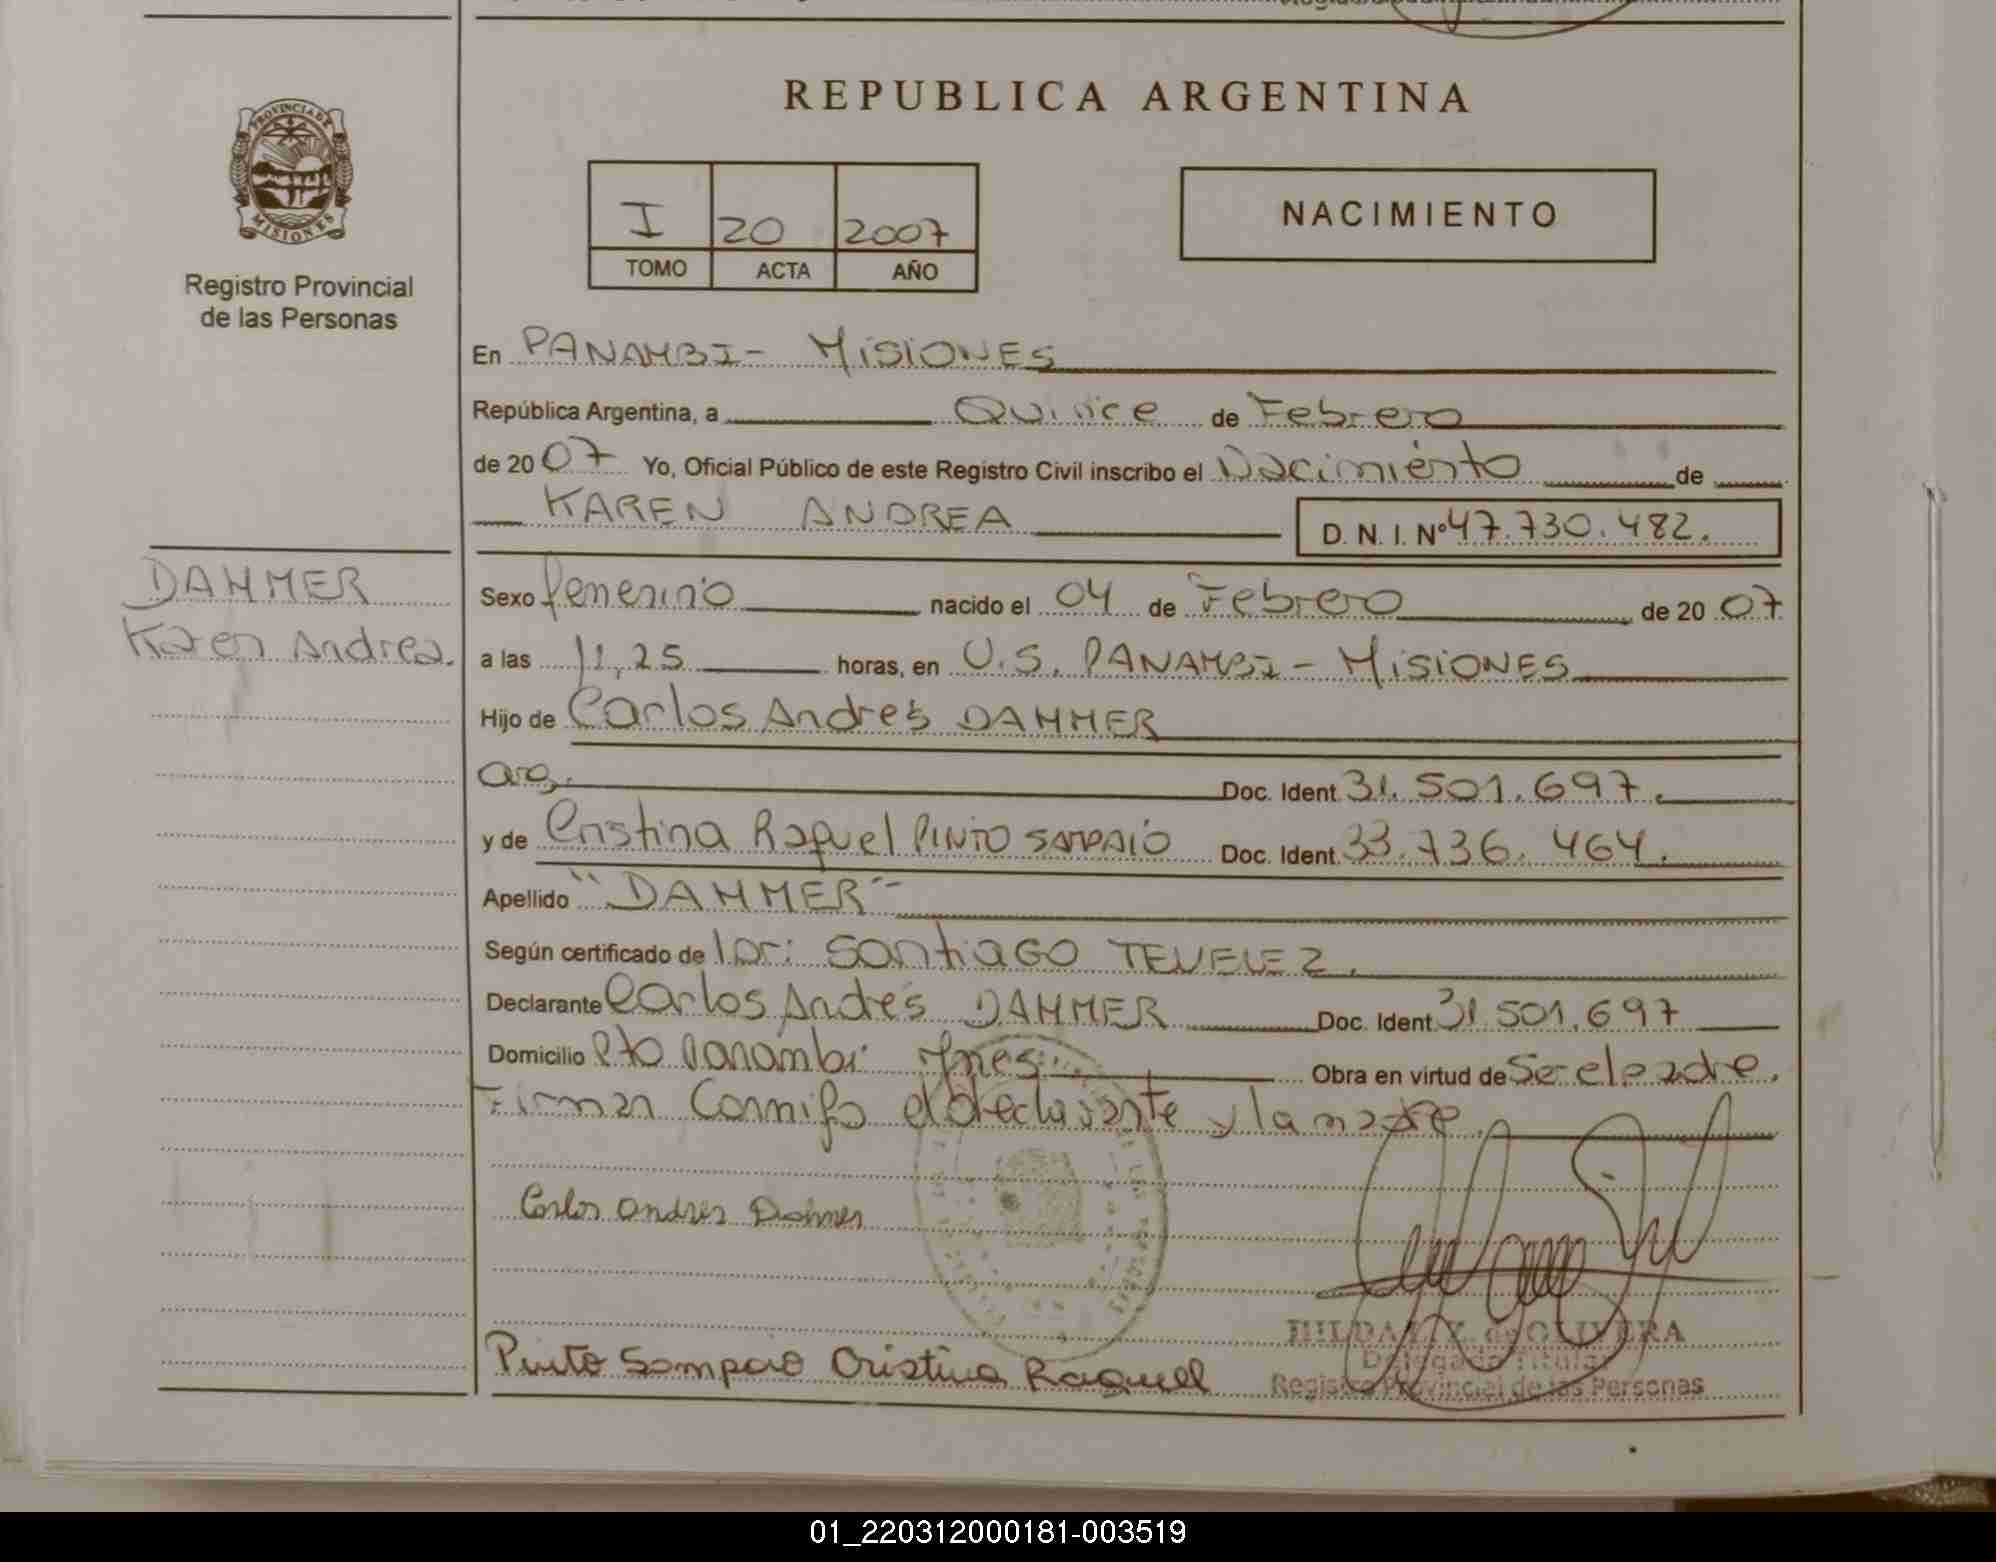 REPUBLICA ARGENTINA
PROVINCIA DE
MISIONES
Registro Provincial
de las Personas
I 20 2007
TOMO ACTA AÑO
NACIMIENTO
En PANAMBI- MISIONES
República Argentina, a Quince de Febrero
de 2007 Yo, Oficial Público de este Registro Civil inscribo el Nacimiento de
KAREN ANDREA D. N. I. Nº 47.730.482.
DAHMER
Karen Andrea.
Sexo femenino nacido el 04 de Febrero de 2007
a las 11,25 horas, en U.S. PANAMBI - MISIONES
Hijo de Carlos Andrés DAHMER
arg. Doc. Ident. 31.501.697.
y de Cristina Raquel PINTO SAMPAIO Doc. Ident. 33.736.464.
Apellido "DAHMER"-
Según certificado de Santiago
Declarante Carlos Andrés DAHMER Doc. Ident. 31.501.697
Domicilio Pto Panambi Mnes. Obra en virtud de Ser el padre.
Firman Conmigo el declarante y la madre.
Carlos Andres Dahmer
Pinto Sampaio Cristina Raquel
HILDA de OLIVERA
Delegada Titular
Registro Provincial de las Personas
01_220312000181-003519